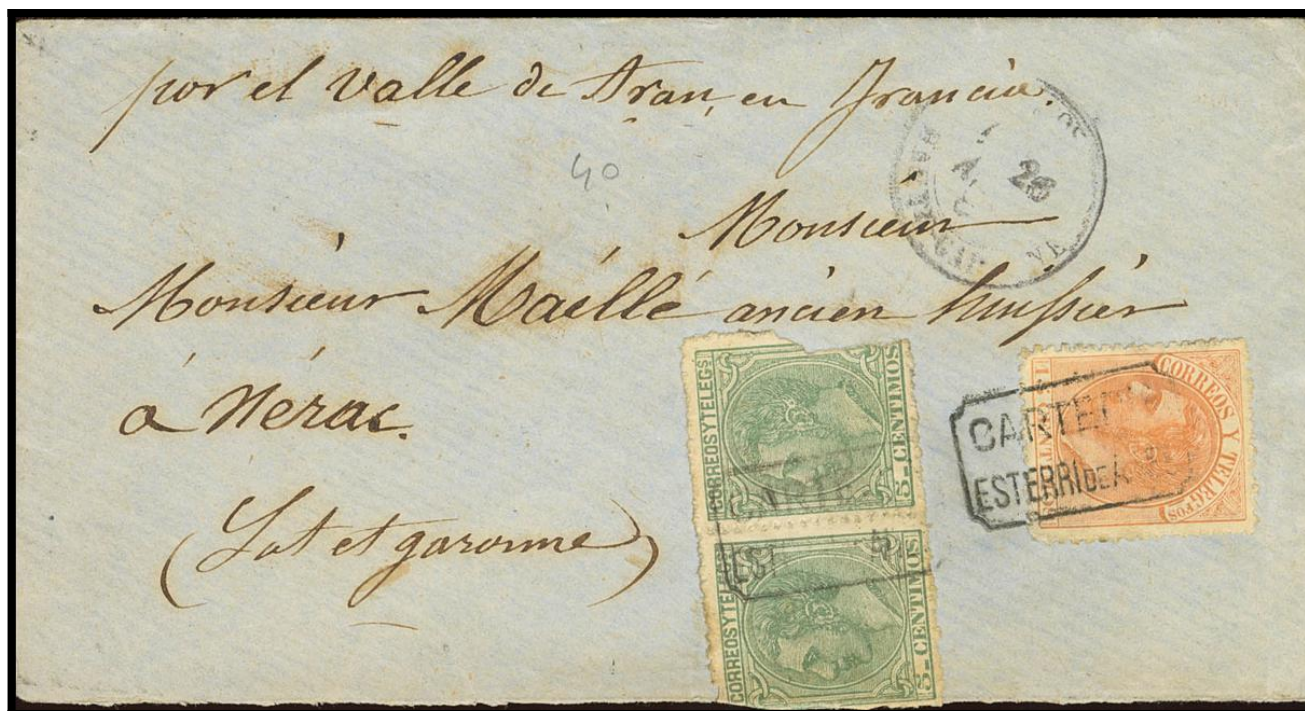 por el Valle de Aran, en Francia.
40
28
Monsieur
Monsieur Maëllé ancien huissier
à Nérac.
(Lot et garonne)
CORREOS Y TELEGS
5 CENTIMOS
CORREOS Y TELEGS
5 CENTIMOS
CORREOS Y TELEGFOS
ESTERRI DE